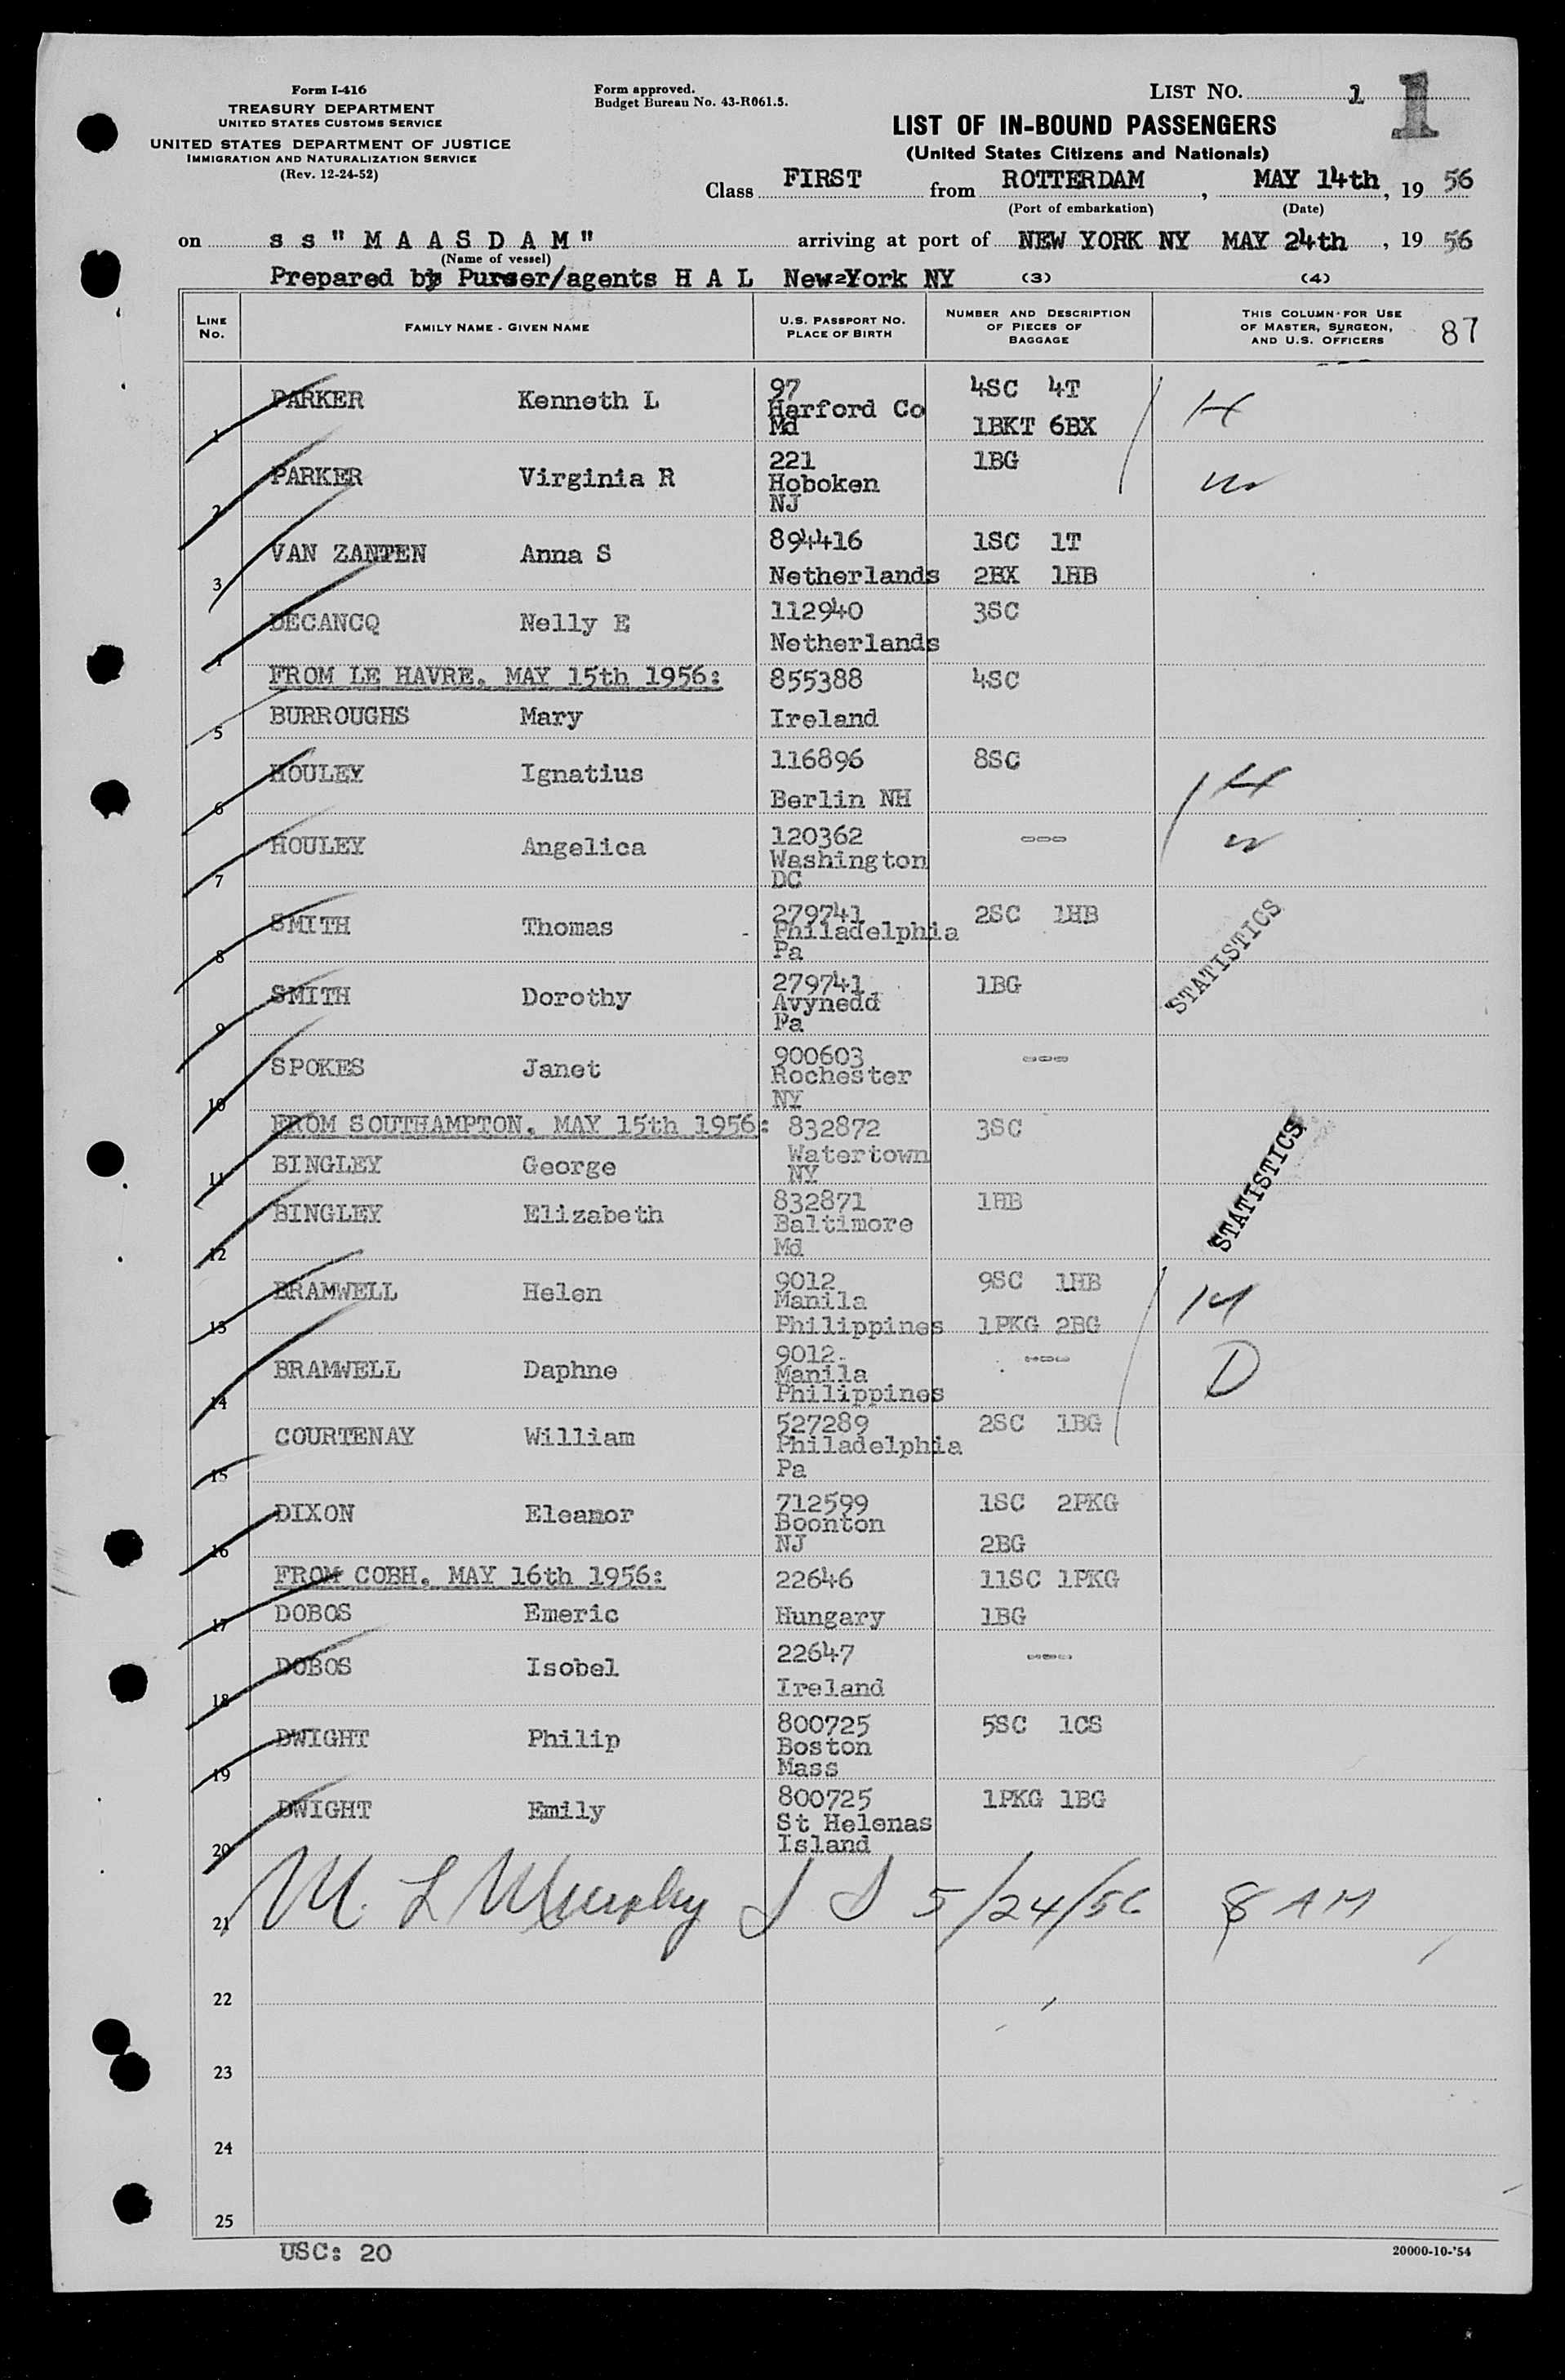 Form I-416
TREASURY DEPARTMENT
UNITED STATES CUSTOMS SERVICE
UNITED STATES DEPARTMENT OF JUSTICE
IMMIGRATION AND NATURALIZATION SERVICE
(Rev. 12-24-52)
Form approved.
Budget Bureau No. 43-R061.5.
LIST NO. 1 1
LIST OF IN-BOUND PASSENGERS
(United States Citizens and Nationals)
Class FIRST from ROTTERDAM, MAY 14th, 19 56
(Port of embarkation) (Date)
on s s " M A A S D A M " arriving at port of NEW YORK NY MAY 24th, 19 56
(Name of vessel)
Prepared by Purser/agents H A L New York NY (2) (3) (4)
LINE No. FAMILY NAME - GIVEN NAME U.S. PASSPORT NO. PLACE OF BIRTH NUMBER AND DESCRIPTION OF PIECES OF BAGGAGE THIS COLUMN FOR USE OF MASTER, SURGEON, AND U.S. OFFICERS 87
1 PARKER Kenneth L 97 Harford Co Md 4SC 4T 1BKT 6BX H
2 PARKER Virginia R 221 Hoboken NJ 1BG W
3 VAN ZANTEN Anna S 894416 Netherlands 1SC 1T 2BX 1HB
4 DECANCQ Nelly E 112940 Netherlands 3SC
FROM LE HAVRE, MAY 15th 1956:
5 BURROUGHS Mary 855388 Ireland 4SC
6 HOULEY Ignatius 116896 Berlin NH 8SC H
7 HOULEY Angelica 120362 Washington DC --- W
8 SMITH Thomas 279741 Philadelphia Pa 2SC 1HB
STATISTICS
9 SMITH Dorothy 279741 Avynedd Pa 1BG
10 SPOKES Janet 900603 Rochester NY ---
FROM SOUTHAMPTON, MAY 15th 1956:
11 BINGLEY George 832872 Watertown NY 3SC
STATISTICS
12 BINGLEY Elizabeth 832871 Baltimore Md 1HB
13 BRAMWELL Helen 9012 Manila Philippines 9SC 1HB 1PKG 2BG M
14 BRAMWELL Daphne 9012 Manila Philippines --- D
15 COURTENAY William 527289 Philadelphia Pa 2SC 1BG
16 DIXON Eleanor 712599 Boonton NJ 1SC 2PKG 2BG
FROM COBH, MAY 16th 1956:
17 DOBOS Emeric 22646 Hungary 11SC 1PKG 1BG
18 DOBOS Isobel 22647 Ireland ---
19 DWIGHT Philip 800725 Boston Mass 5SC 1CS
20 DWIGHT Emily 800725 St Helenas Island 1PKG 1BG
21 M. L Murphy 5/24/56 8 AM
22
23
24
25
USC: 20
20000-10-'54